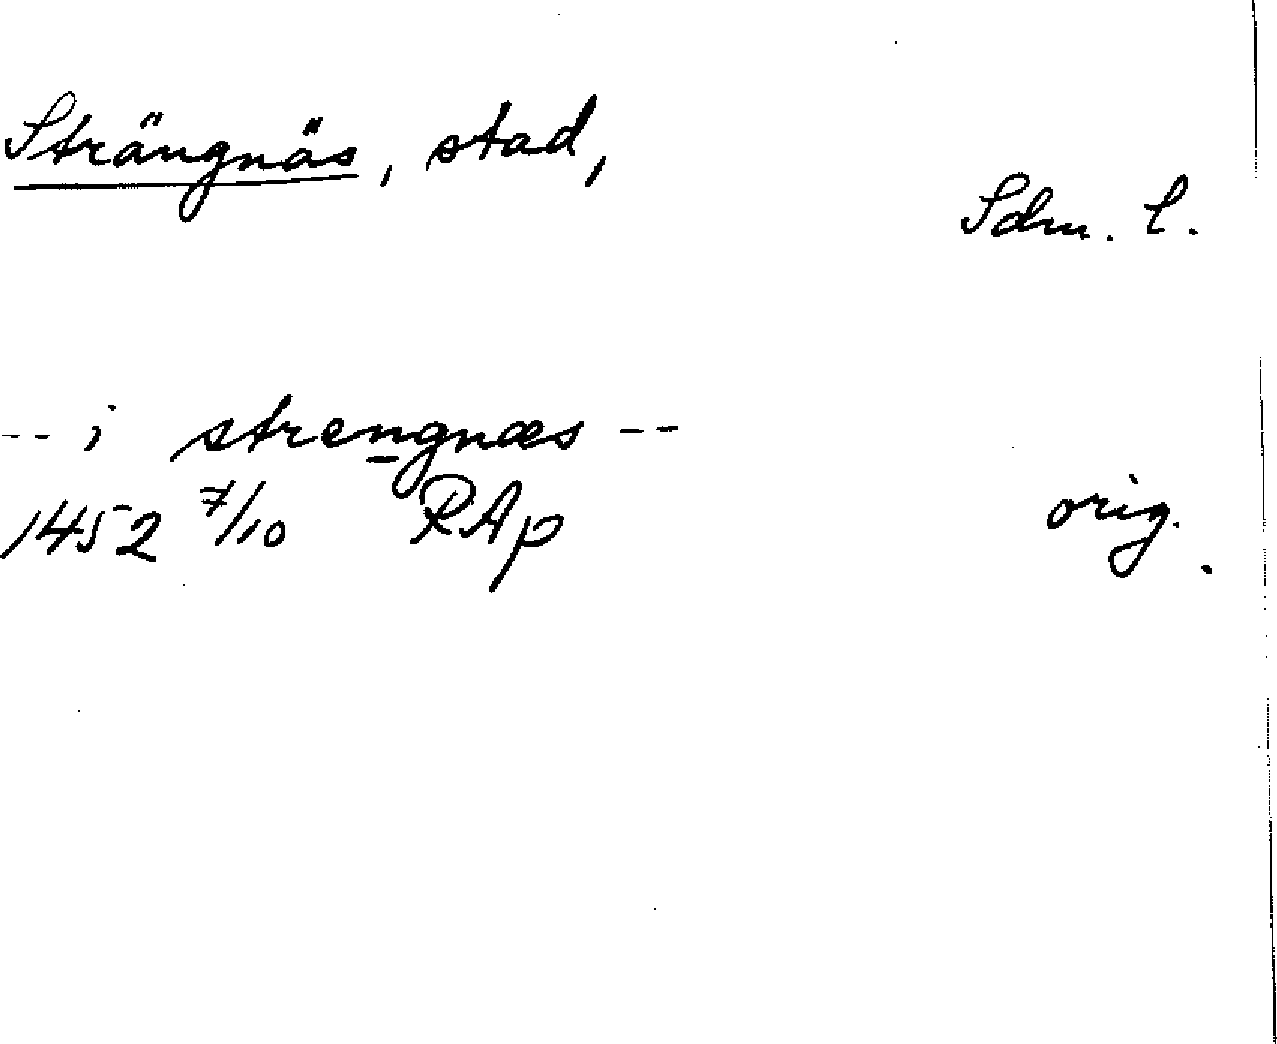 Strängnäs, stad,
Sdm. l.
-- i strengnæs --
1452 7/10 RAp orig.